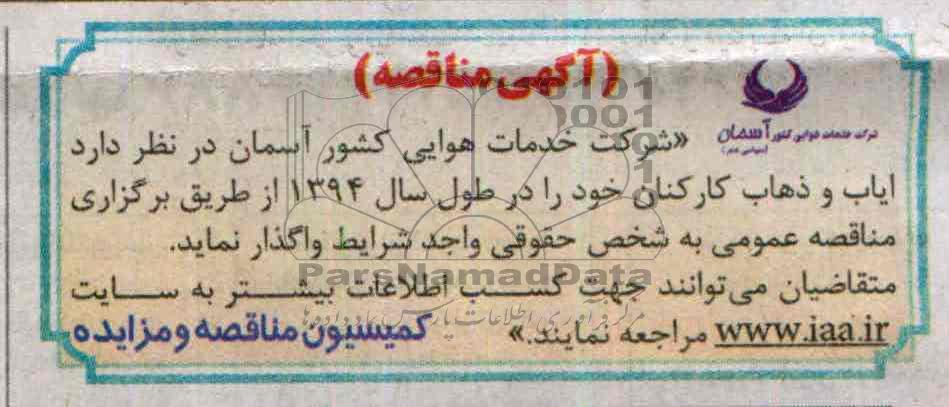 (آگهی مناقصه)
شرکت خدمات هوایی کشور آسمان
(سهامی عام)
«شرکت خدمات هوایی کشور آسمان در نظر دارد
ایاب و ذهاب کارکنان خود را در طول سال ۱۳۹۴ از طریق برگزاری
مناقصه عمومی به شخص حقوقی واجد شرایط واگذار نماید.
متقاضیان می‌توانند جهت کســب اطلاعات بیشــتر به ســایت
www.iaa.ir مراجعه نمایند.»
کمیسیون مناقصه و مزایده
ParsNamadData
مرکز فرآوری اطلاعات پارس نماد داده‌ها